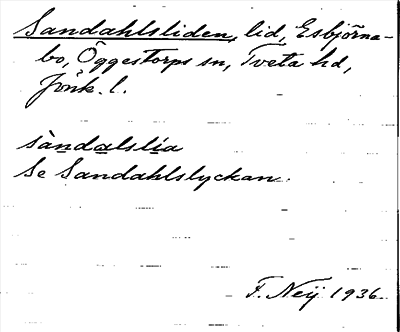 Sandahlsliden, lid, Esbjörna-
bo, Öggestorps sn, Tveta hd,
Jönk. l.
sàndalslia
Se Sandahlslyckan.
F. Neij 1936.